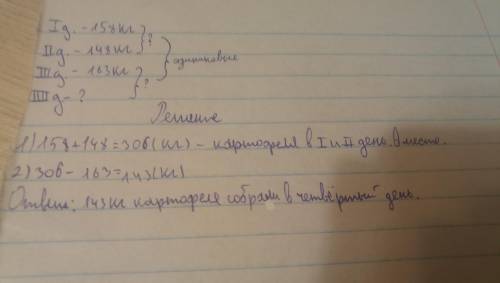 I д. - 158 кг } ?
II д. - 148 кг } одинаковые
III д - 163 кг } ?
IIII д - ?
Решение
1) 158+148=306(кг) - картофеля в I и II день. Вместе.
2) 306 - 163=143(кг)
Ответ: 143 кг картофеля собрали в четвёртый день.